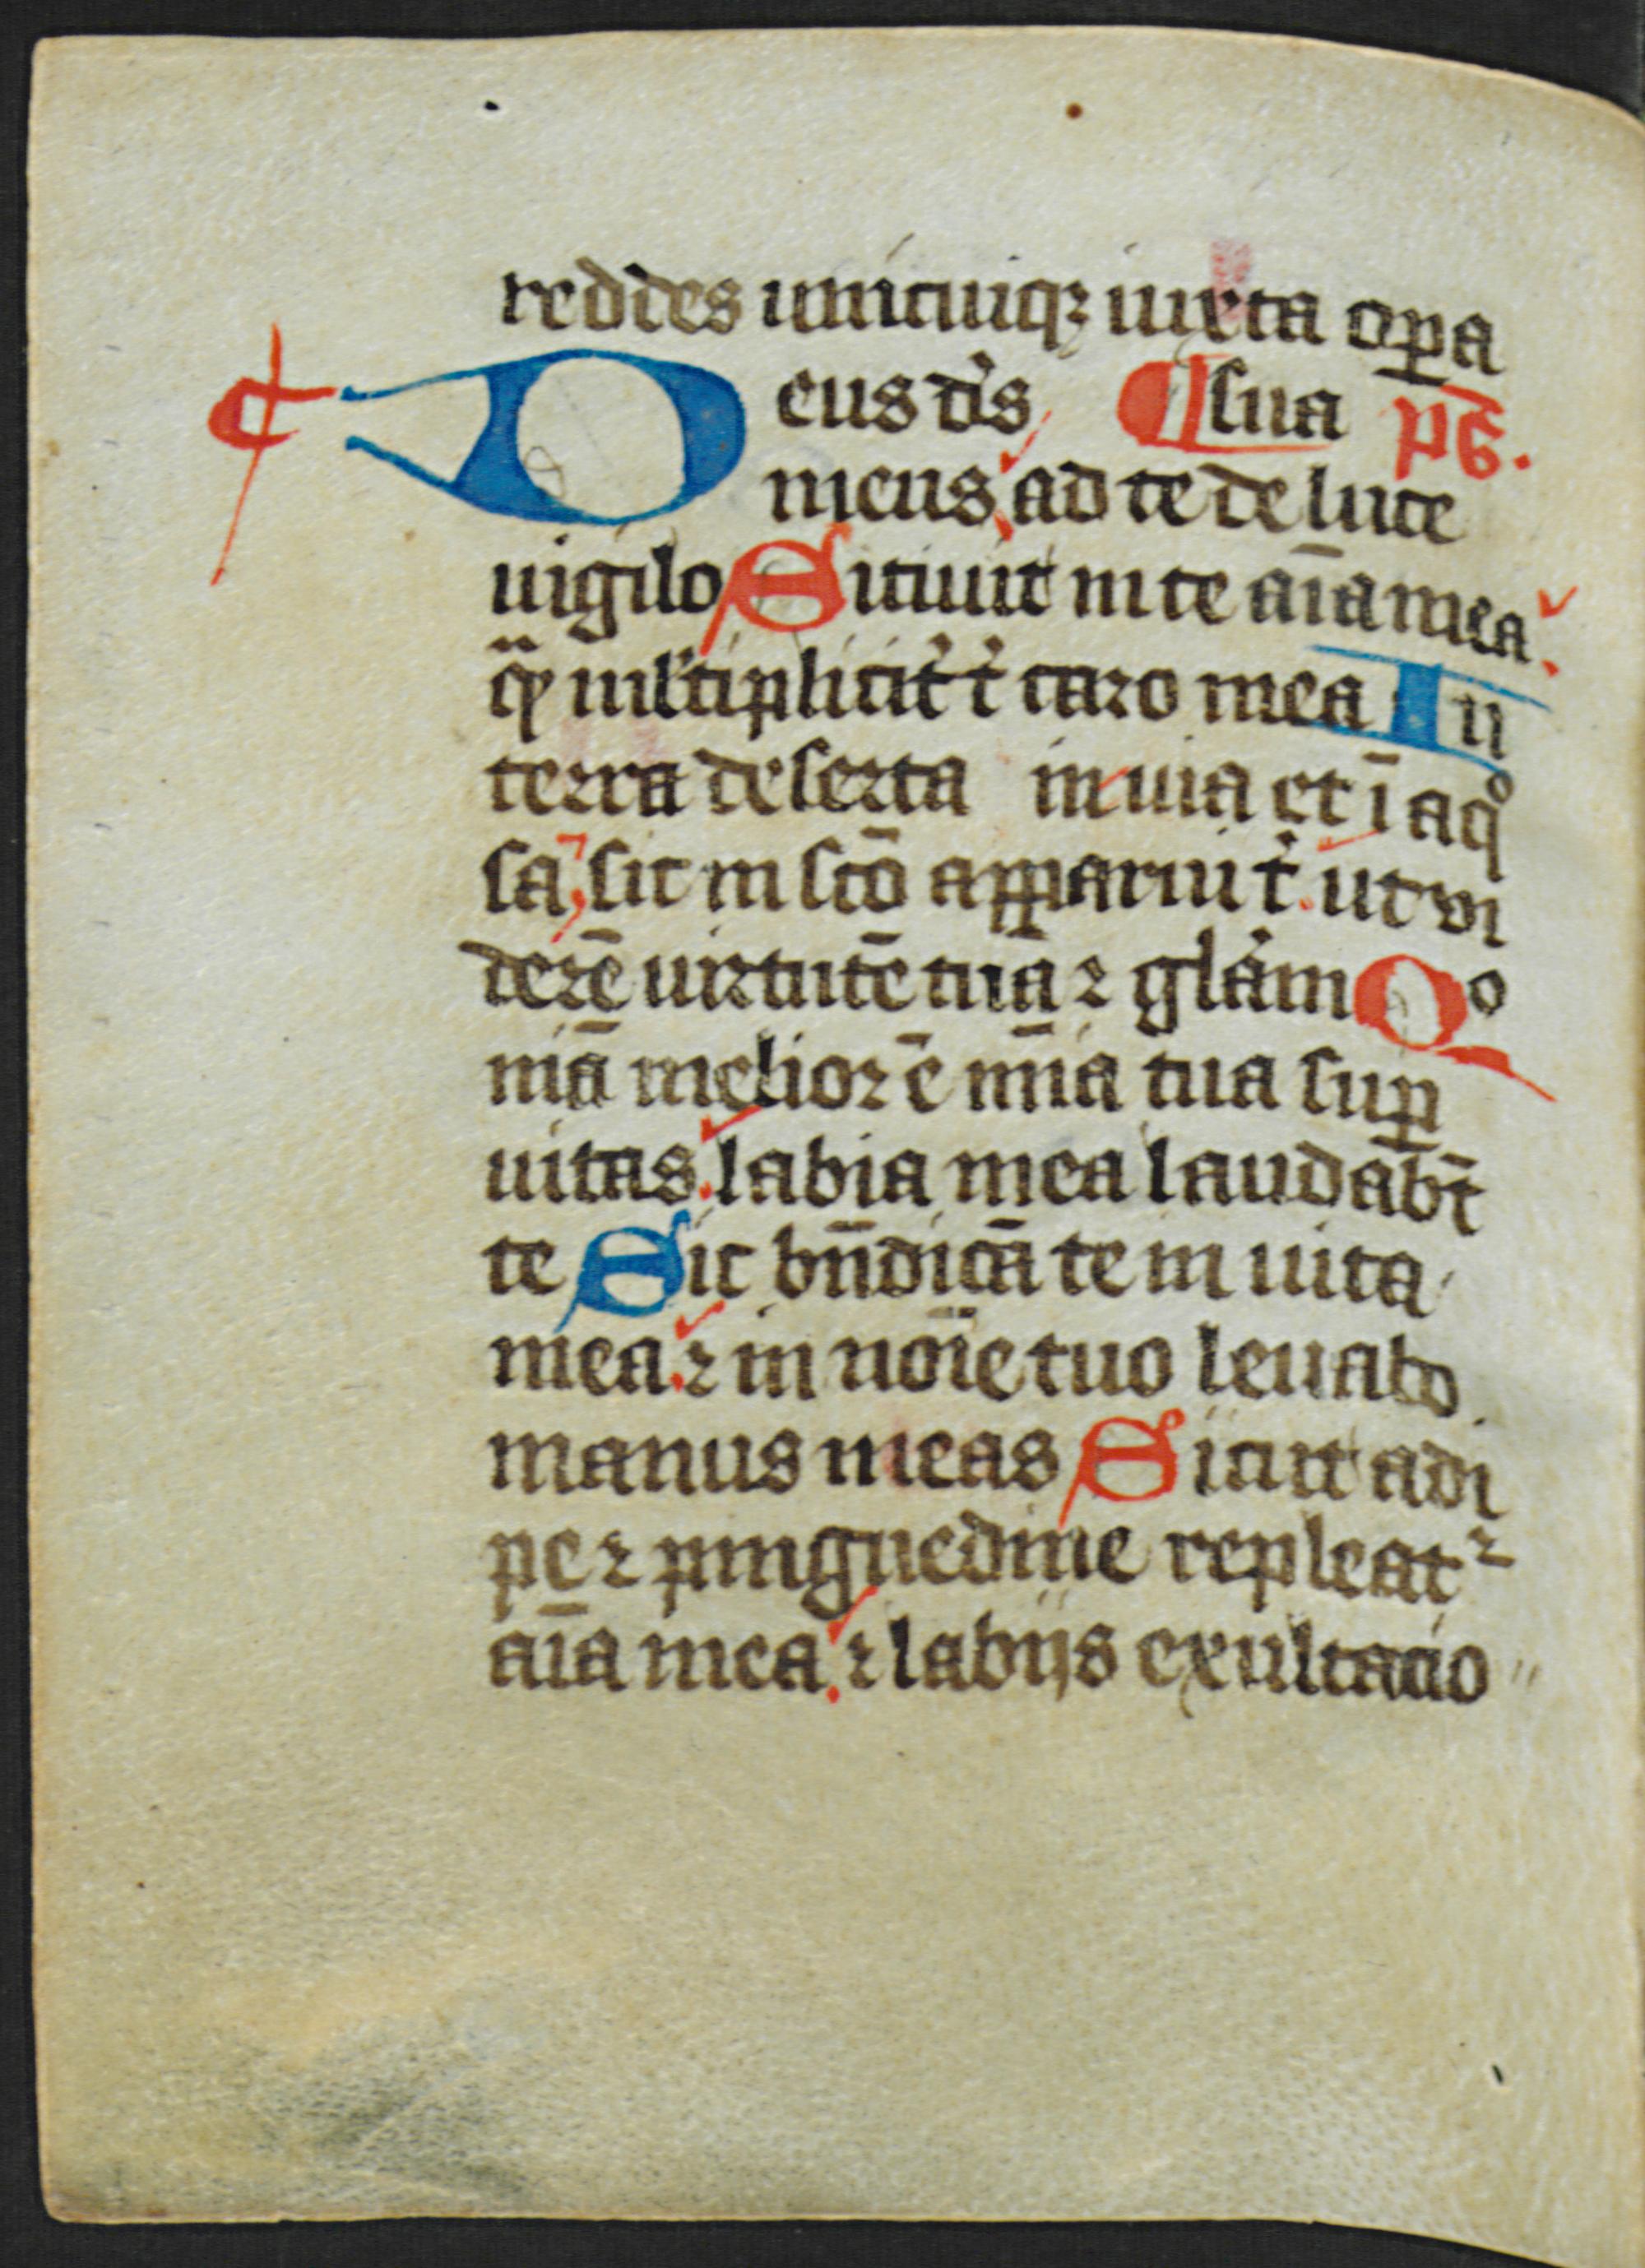 reddes unicuiqꝫ iuxta oꝑa
Deus dˀs ¶ sua ps̄.
meus ad te de luce
uigilo Sitiuit in te aīa mea
qͣꝫ ml̓tiplicitˀ tˀ caro mea In
terra deserta inuia et ī aqͦ
sa, sic in sc̄o apparui tˀ. ut vi
derē uirtutē tuā ⁊ gl̓am Qo
niā melior ē mīa tua suꝑ
uitas. labia mea laudabt̄
te Sic bn̄dicā te in uita
mea. ⁊ in noīe tuo leuabo
manus meas Sicut adi
pe ⁊ pinguedine repleatᷣ
aīa mea. ⁊ labijs exultacio〃